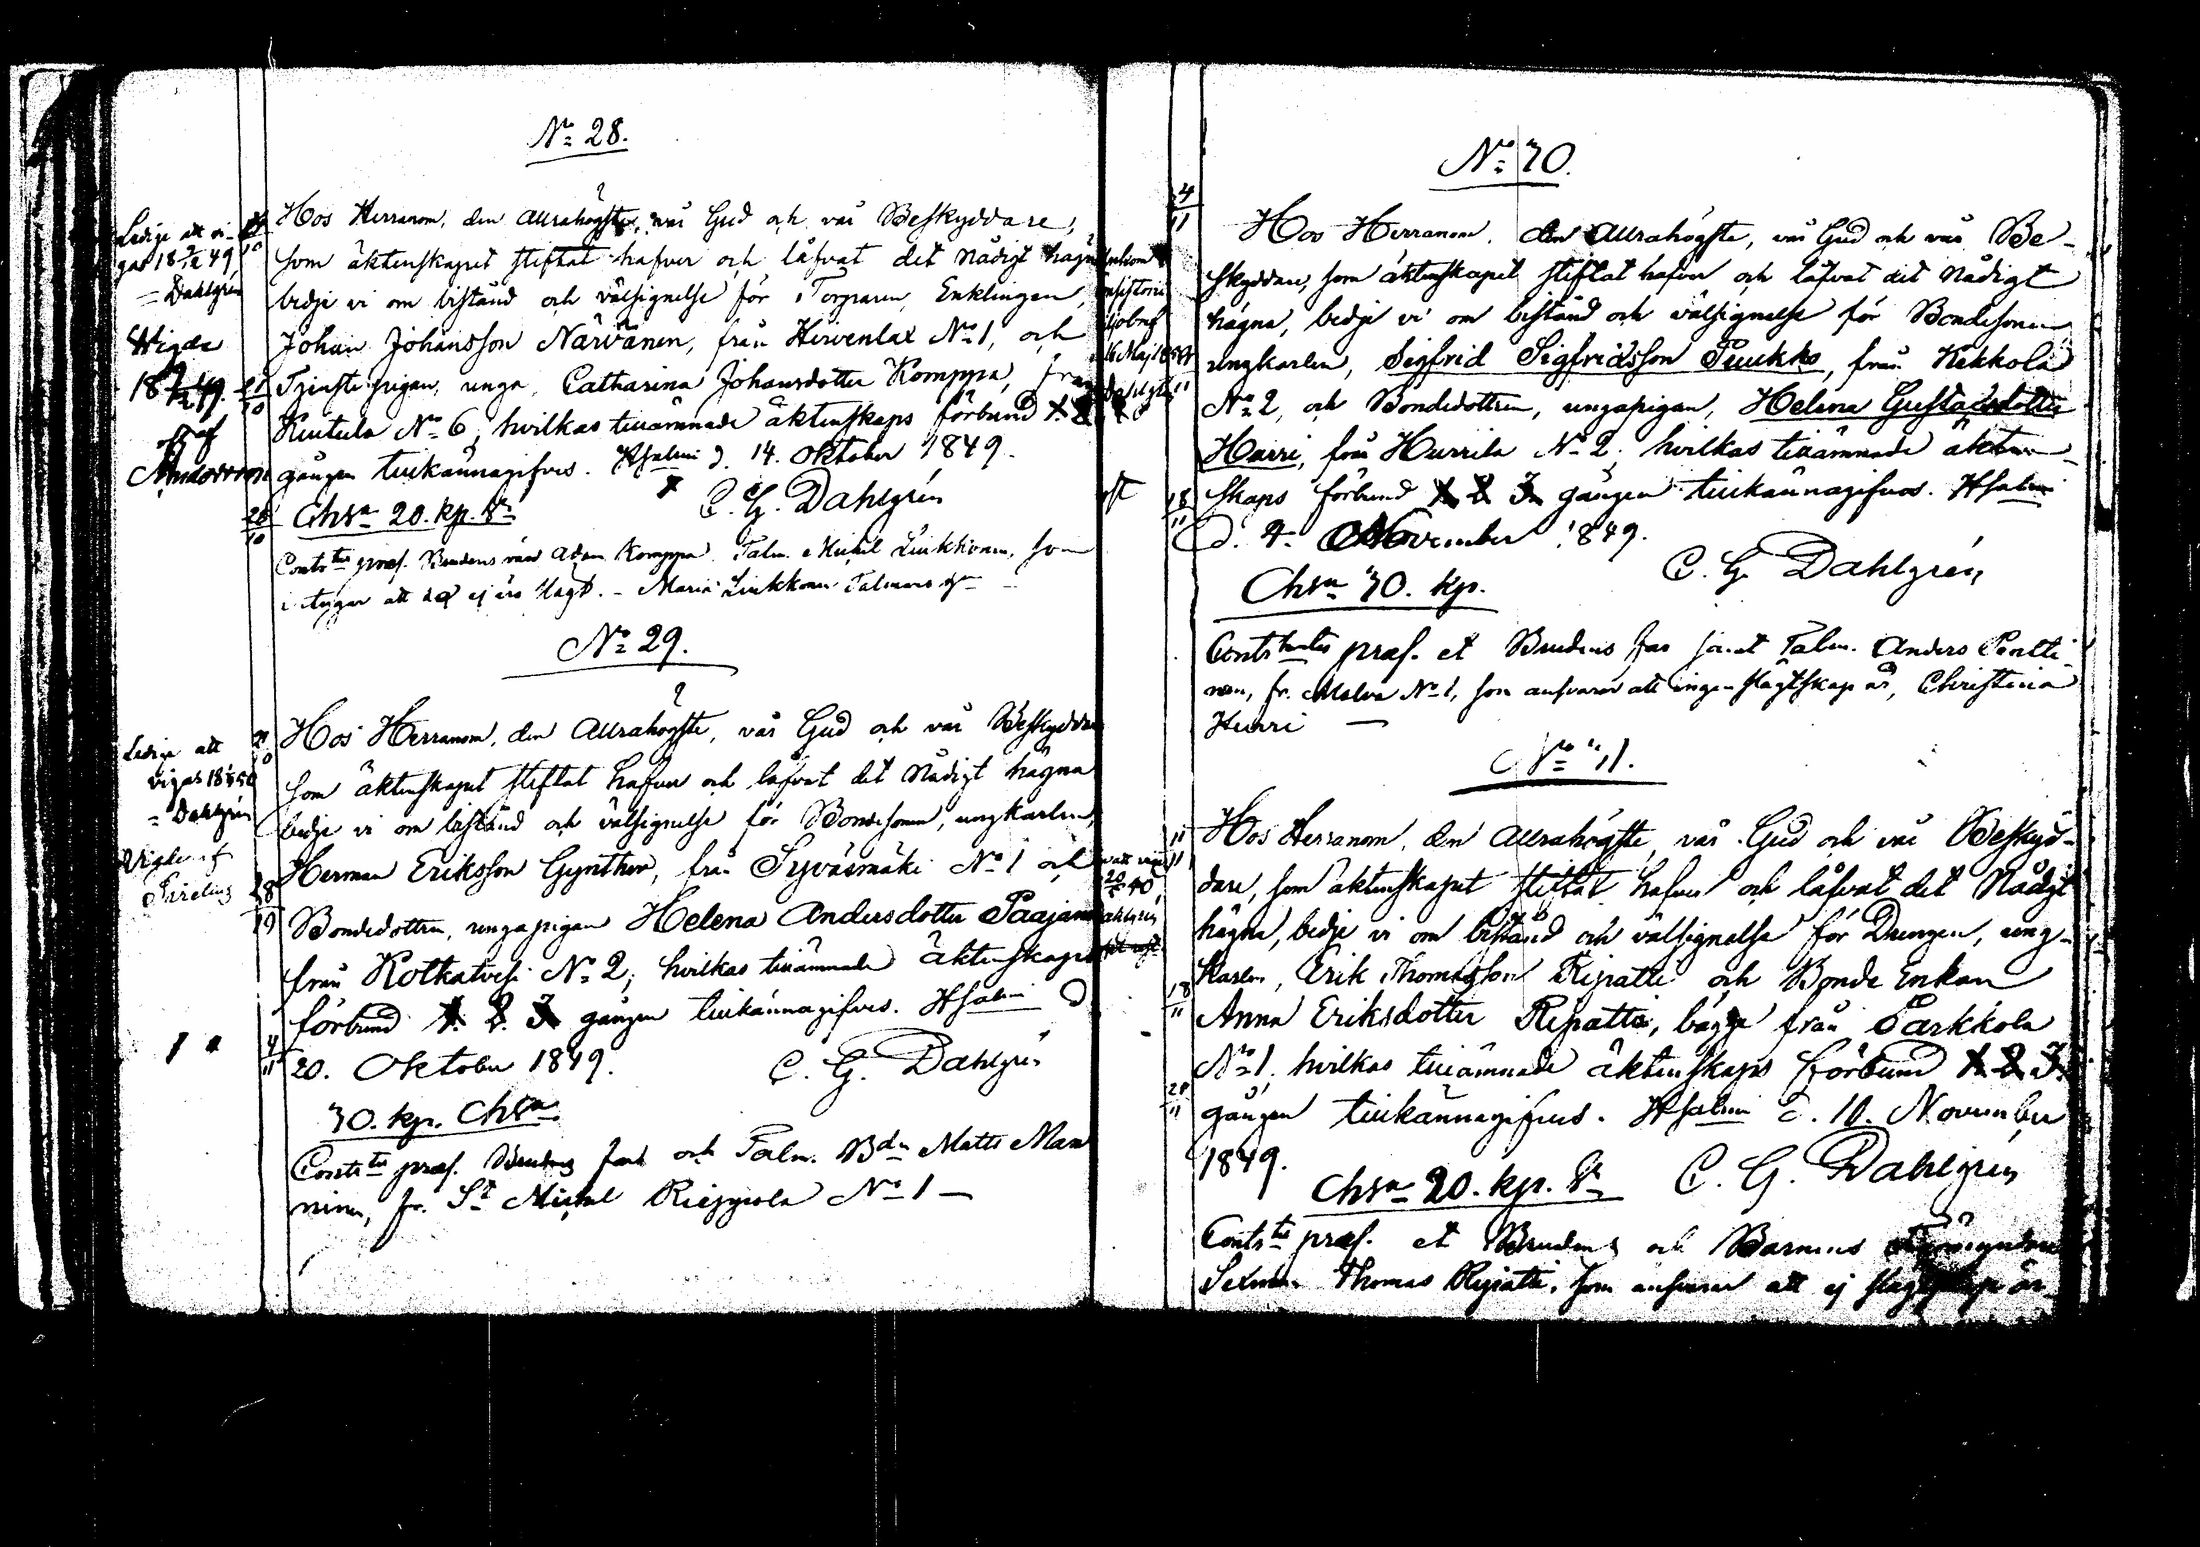 No 28.
Hos Herranom, den Allrahögste, vår Gud och vår Beskyddare,
som äktenskapet stiftat hafver och låfvat det Nådigt hägna
bedje vi om bistånd och välsignelse för Torparen, Enklingen,
Johan Johansson Närvänen, från Hirvenlax No 1, och
Tjenstepigan, unga, Catharina Johansdotter Komppa, från
Kuutula No 6; hvilkas tillämnade äktenskaps förbund 1. 2.
gången tillkännagifves. Hsalmi d. 14. Oktober 1849.
C. G. Dahlgrén
Chsn 20. kp. Sr
Contrtes præs. Brudens Adam Komppa. Talm. Michel Liukkonen, som
intygar att de ej äro slägt. - Maria Liukkonen Talmans
Ledige att vi-
gas 18 49
= Dahlgrén
Wigde
18 49.
af
20
10
No 29.
Hos Herranom, den Allrahögste, vår Gud och vår Beskyddare
som äktenskapet stiftat hafver och låfvat det Nådigt hägna
bedje vi om bistånd och välsignelse för Bondesonen, ungkarlen,
Herman Eriksson Gynther, från Syväsmäki No 1 och
Bondedottren, ungapigan Helena Andersdotter Paajanen
från Kotkatvesi No 2; hvilkas tillämnade äktenskaps
förbund 1. 2. 3. gången tillkännagifves. Hsalmi d.
20. Oktober 1849.
C. G. Dahlgrén
30. kp. Chsn
Contrtes præs. Brudens far och Talm. Bdn Matts Man
ninen, fr. St Michel Rieppola No 1 —
Ledige att
vigas 18 50
= Dahlgrén
Vigde af
Sirelius
28
10
4
11
No 30.
4
11
Hos Herranom, den Allrahögste, vår Gud och vår Be-
skyddare, som äktenskapet stiftat hafver och låfvat det Nådigt
hägna, bedje vi om bistånd och välsignelse för Bondesonen
ungkarlen, Sigfrid Sigfridsson Puukko, från Kekkola
No 2, och Bondedottren, ungapigan, Helena Gustafsdotter
Harri, från Hurrila No 2; hvilkas tillämnade äkten-
skaps förbund 1. 2. 3. gången tillkännagifves. Hsalmi
d. 4. November 1849.
C. G. Dahlgrén
Chsn 30. kp.
Contrhentes præs. et Brudens far samt Talm. Anders Pentti-
nen, fr. Malva No 1, som ansvarar att ingen slägtskap är, Christina
Hurri —
18
11
No 31.
Hos Herranom, den Allrahögste, vår Gud och vår Beskyd-
dare, som äktenskapet stiftat hafver och låfvat det Nådigt
hägna, bedje vi om bistånd och välsignelse för Drengen, ung-
karlen, Erik Thomasson Ripatti och Bonde Enkan
Anna Eriksdotter Ripatti, bägge från Parkkola
No 1, hvilkas tillämnade äktenskaps förbund 1. 2. 3.
gången tillkännagifves. Hsalmi d. 10. November
1849.
C. G. Dahlgrén
Chsn 20. kp. Sr
Contrtes præs. et Brudens och Barnens
Sexman Thomas Ripatti, som ansvarar att ej slägtskap är
11
11
18
11